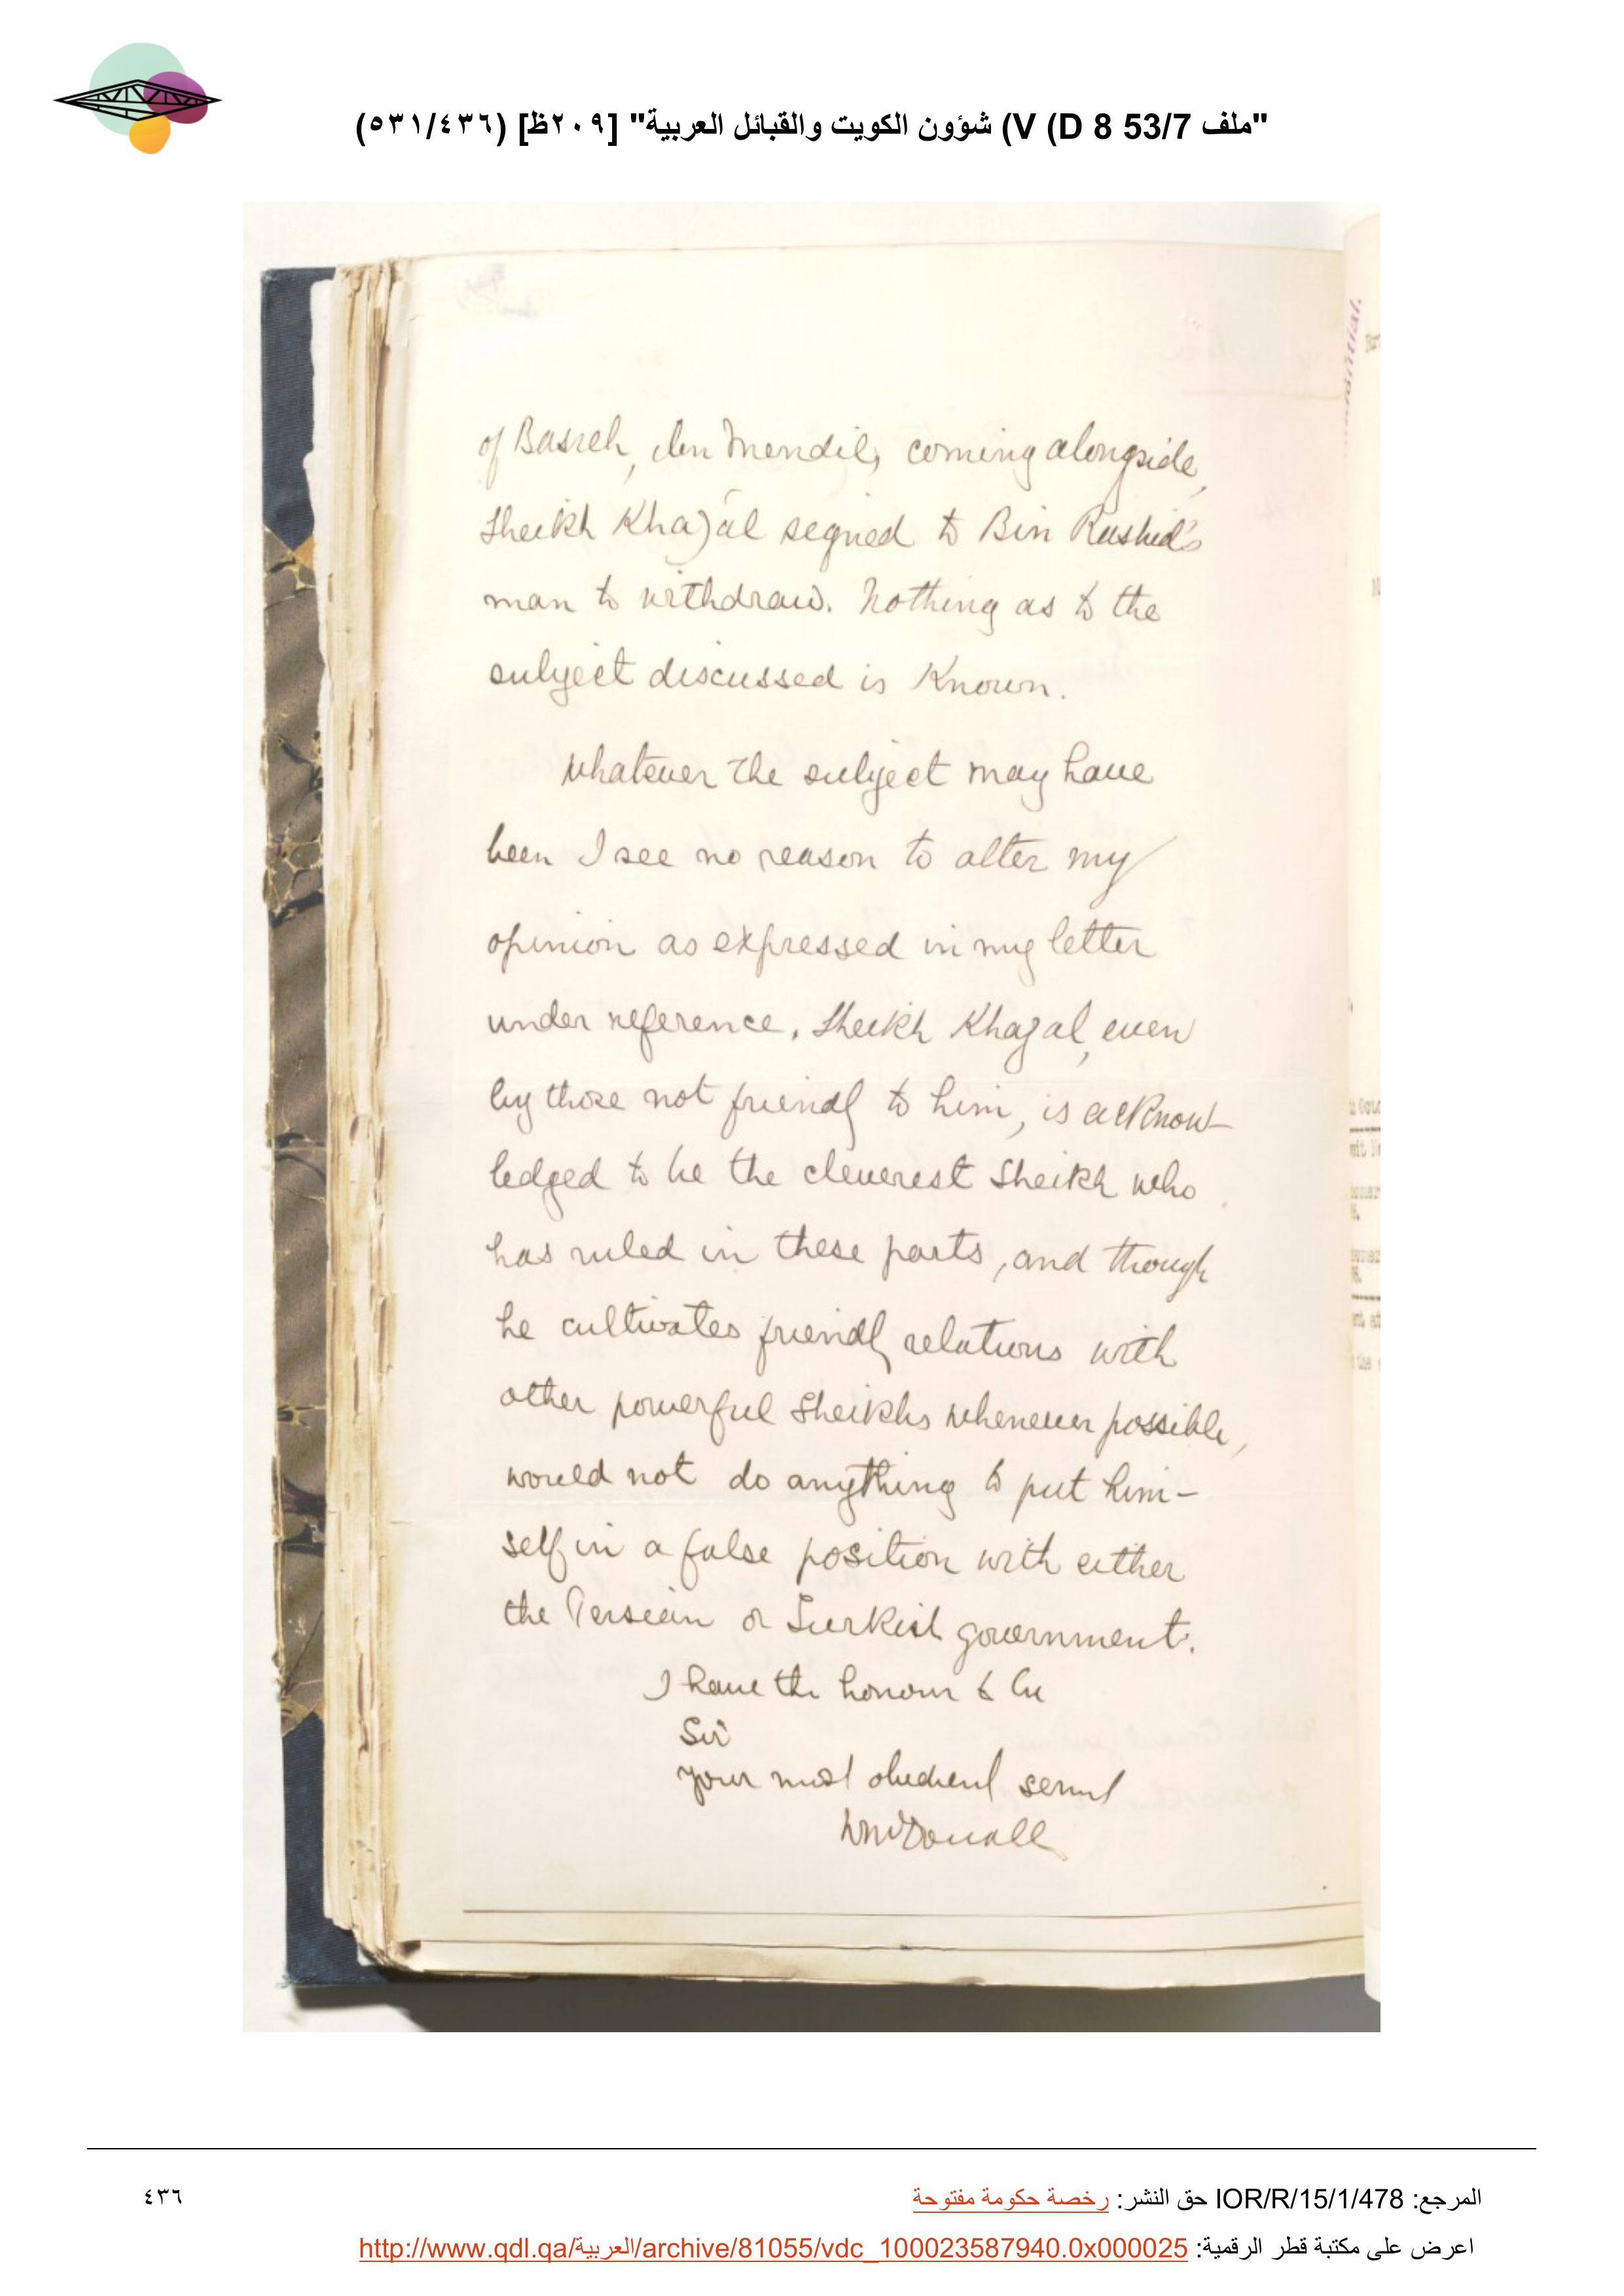 "ملف 53/7 D 8) V) شؤون الكويت والقبائل العربية" [٢٠٩ظ] (٥٣١/٤٣٦)
of Basreh, ibn Mendil, coming alongside,
Sheikh Khazal signed to Bin Rashid's
man to withdraw. Nothing as to the
subject discussed is known.
Whatever the subject may have
been I see no reason to alter my
opinion as expressed in my letter
under reference. Sheikh Khazal, even
by those not friendly to him, is acknow-
ledged to be the cleverest Sheikh who
has ruled in these parts, and though
he cultivates friendly relations with
other powerful Sheikhs whenever possible,
would not do anything to put him-
self in a false position with either
the Persian or Turkish government.
I have the honour to be
Sir
your most obedient servant
W McDouall
المرجع: IOR/R/15/1/478 حق النشر: رخصة حكومة مفتوحة
٤٣٦
اعرض على مكتبة قطر الرقمية: http://www.qdl.qa/العربية/archive/81055/vdc_100023587940.0x000025